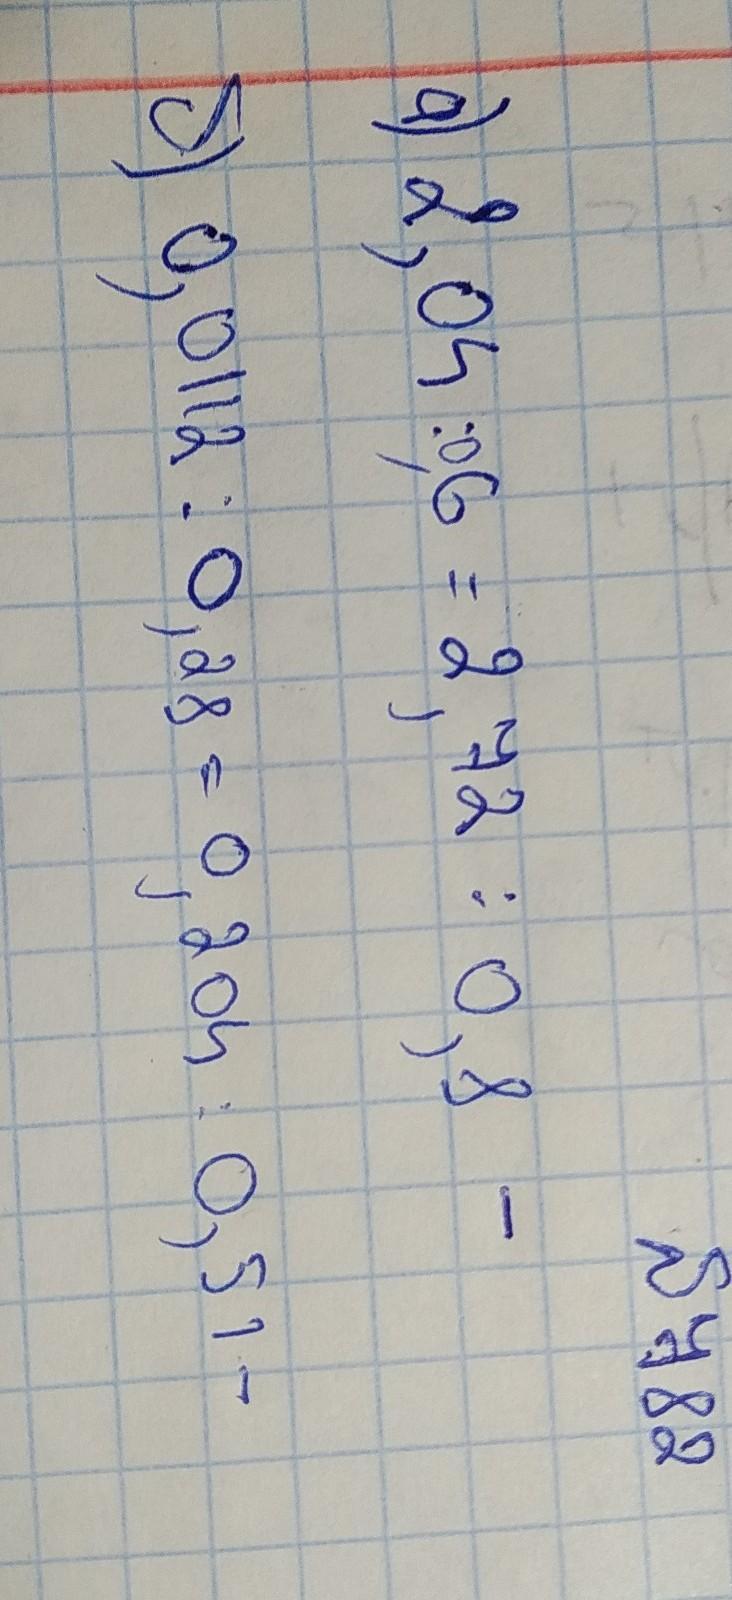 N782
а) 2,04 : 0,6 = 2,72 : 0,8 -
б) 0,0112 : 0,28 = 0,204 : 0,51 -